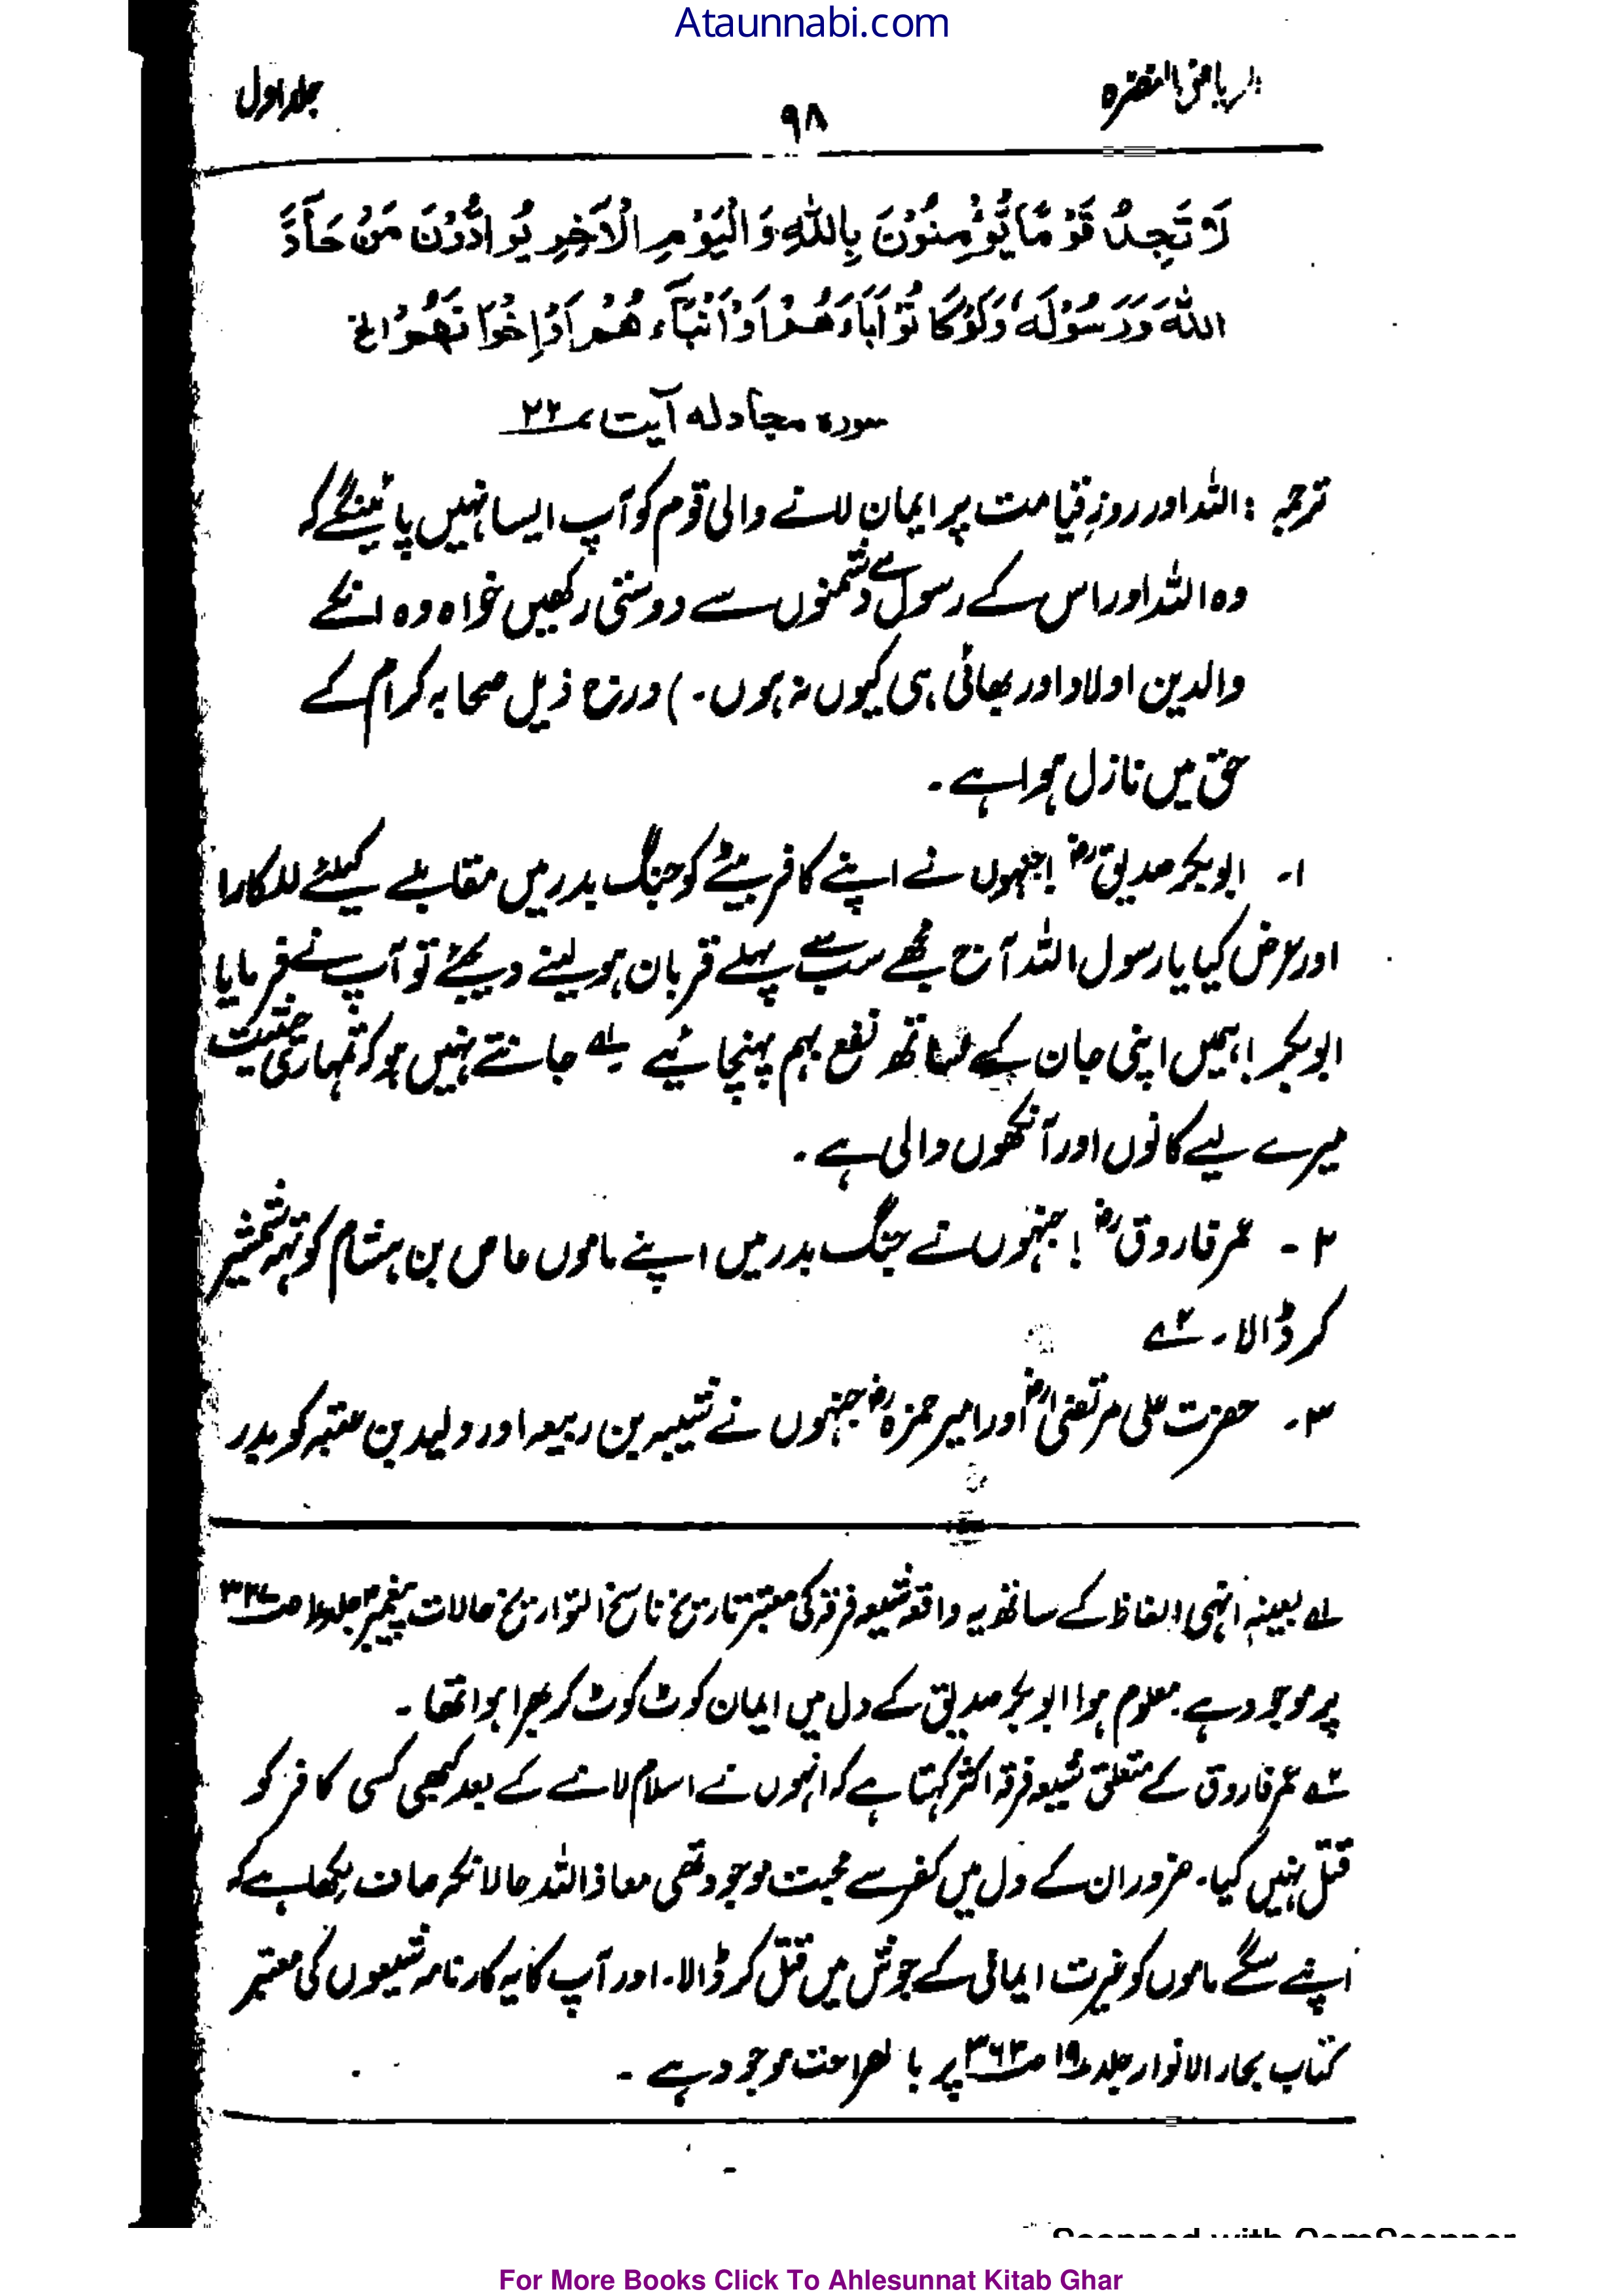 Ataunnabi.com
الریاض النضرہ
۹۸
جلد اول
لَا تَجِدُ قَوْمًا يُّؤْمِنُوْنَ بِاللّٰهِ وَالْيَوْمِ الْاٰخِرِ يُوَادُّوْنَ مَنْ حَآدَّ
اللّٰهَ وَرَسُوْلَهٗ وَلَوْ كَانُوْٓا اٰبَآءَهُمْ اَوْ اَبْنَآءَهُمْ اَوْ اِخْوَانَهُمْ الخ
سورہ مجادلہ آیت ۲۲
ترجمہ : اللہ اور روزِ قیامت پر ایمان لانے والی قوم کو آپ ایسا نہیں پائینگے کہ
وہ اللہ اور اس کے رسول کے دشمنوں سے دوستی رکھیں خواہ وہ انکے
والدین اولاد اور بھائی ہی کیوں نہ ہوں۔) درج ذیل صحابہ کرام کے
حق میں نازل ہوا ہے۔
۱۔ ابوبکر صدیق رضؓ! جنہوں نے اپنے کافر بیٹے کو جنگ بدر میں مقابلے کیلئے للکارا
اور عرض کیا یا رسول اللہ آج مجھے سب سے پہلے قربان ہو لینے دیجئے تو آپ نے فرمایا
ابوبکر! ہمیں اپنی جان کے ساتھ نفع بہم پہنچائیے ۱؎ جانتے نہیں ہو کہ تمہاری حیثیت
میرے لیے کانوں اور آنکھوں والی ہے۔
۲۔ عمر فاروق رضؓ! جنہوں نے جنگ بدر میں اپنے ماموں عاص بن ہشام کو تہہ شمشیر
کر ڈالا۔ ۲؎
۳۔ حضرت علی مرتضیٰ رضؓ اور امیر حمزہ رضؓ جنہوں نے شیبہ بن ربیعہ اور ولید بن عتبہ کو بدر
۱؎ بعینہٖ انہی الفاظ کے ساتھ یہ واقعہ شیعہ فرقہ کی معتبر تاریخ ناسخ التواریخ حالات پیغمبر جلد
پر موجود ہے۔ معلوم ہوا ابوبکر صدیق کے دل میں ایمان کوٹ کوٹ کر بھرا ہوا تھا۔
۲؎ عمر فاروق کے متعلق شیعہ فرقہ اکثر کہتا ہے کہ انہوں نے اسلام لانے کے بعد کبھی کسی کافر کو
قتل نہیں کیا۔ ضرور ان کے دل میں کفر سے محبت موجود تھی معاذ اللہ حالانکہ صاف لکھا ہے کہ
اپنے سگے ماموں کو غیرت ایمانی کے جوش میں قتل کر ڈالا۔ اور آپ کا یہ کارنامہ شیعوں کی معتبر
کتاب بحار الانوار جلد ۱۹ ص ۳۶۳ پر بالصراحت موجود ہے۔
For More Books Click To Ahlesunnat Kitab Ghar